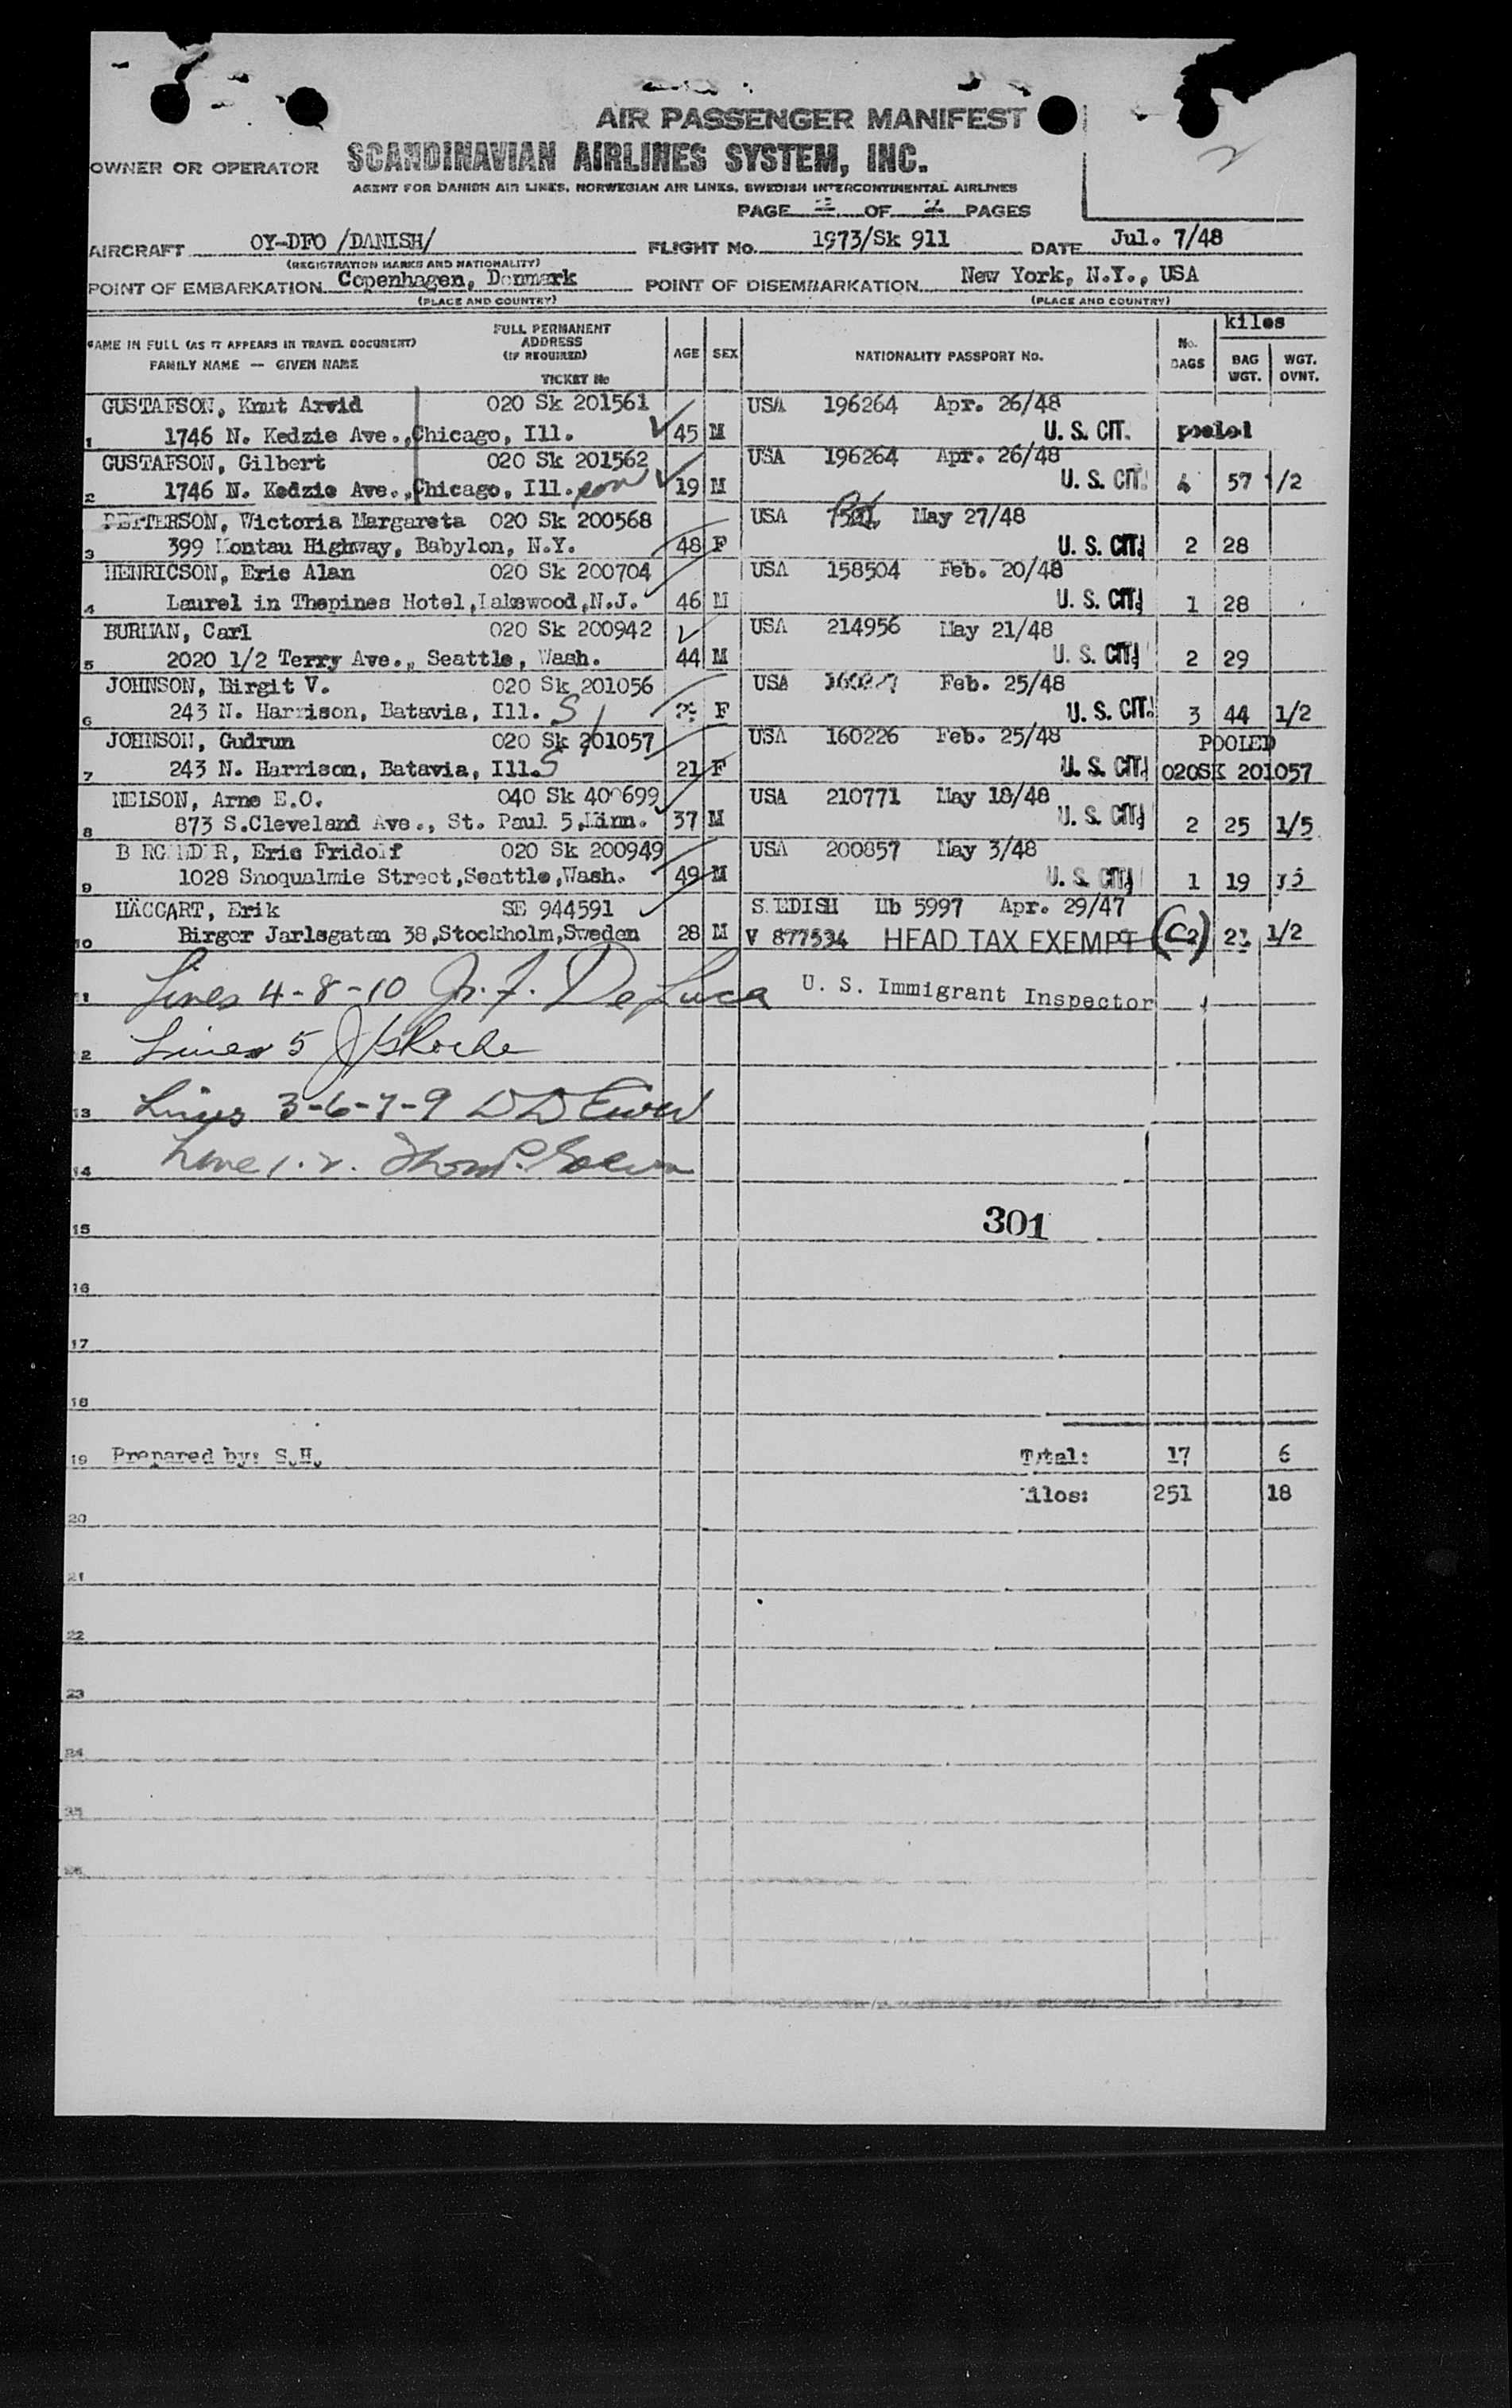 AIR PASSENGER MANIFEST
OWNER OR OPERATOR SCANDINAVIAN AIRLINES SYSTEM, INC.
AGENT FOR DANISH AIR LINES, NORWEGIAN AIR LINES, SWEDISH INTERCONTINENTAL AIRLINES
PAGE 2 OF 2 PAGES
AIRCRAFT OY-DFO /DANISH/ FLIGHT No. 1973/Sk 911 DATE Jul. 7/48
(REGISTRATION MARKS AND NATIONALITY)
POINT OF EMBARKATION Copenhagen, Denmark POINT OF DISEMBARKATION New York, N.Y., USA
(PLACE AND COUNTRY) (PLACE AND COUNTRY)
kilos
NAME IN FULL (AS IT APPEARS IN TRAVEL DOCUMENT) FULL PERMANENT ADDRESS (IF REQUIRED) AGE SEX NATIONALITY PASSPORT No. No. BAGS BAG WGT. WGT. OVNT.
FAMILY NAME — GIVEN NAME TICKET No
GUSTAFSON, Knut Arvid 020 Sk 201561 USA 196264 Apr. 26/48
1 1746 N. Kedzie Ave., Chicago, Ill. 45 M U. S. CIT. pooled
GUSTAFSON, Gilbert 020 Sk 201562 USA 196264 Apr. 26/48
2 1746 N. Kedzie Ave., Chicago, Ill. son 19 M U. S. CIT. 4 57 1/2
PETTERSON, Wictoria Margareta 020 Sk 200568 USA May 27/48
3 399 Montau Highway, Babylon, N.Y. 48 F U. S. CIT. 2 28
HENRICSON, Eric Alan 020 Sk 200704 USA 158504 Feb. 20/48
4 Laurel in Thepines Hotel, Lakewood, N.J. 46 M U. S. CIT. 1 28
BURMAN, Carl 020 Sk 200942 USA 214956 May 21/48
5 2020 1/2 Terry Ave., Seattle, Wash. 44 M U. S. CIT. 2 29
JOHNSON, Birgit V. 020 Sk 201056 USA 160227 Feb. 25/48
6 243 N. Harrison, Batavia, Ill. S F U. S. CIT. 3 44 1/2
JOHNSON, Gudrun 020 Sk 201057 USA 160226 Feb. 25/48 POOLED
7 243 N. Harrison, Batavia, Ill. S 21 F U. S. CIT. 020SK 201057
NELSON, Arne E.O. 040 Sk 400699 USA 210771 May 18/48
8 873 S.Cleveland Ave., St. Paul 5, Minn. 37 M U. S. CIT. 2 25 1/5
B RG ND R, Eric Fridolf 020 Sk 200949 USA 200857 May 3/48
9 1028 Snoqualmie Street, Seattle, Wash. 49 M U. S. CIT. 1 19
HÄGGART, Erik SE 944591 S EDISH Ub 5997 Apr. 29/47
10 Birger Jarlsgatan 38, Stockholm, Sweden 28 M V 877534 HEAD TAX EXEMPT (C) 2 21 1/2
11 Lines 4-8-10 De Luca U. S. Immigrant Inspector
12 Lines 5
13 Lines 3-6-7-9
14 Line 1. 2.
15 301
16
17
18
19 Prepared by: S.H. Total: 17 6
Kilos: 251 18
20
21
22
23
24
25
26